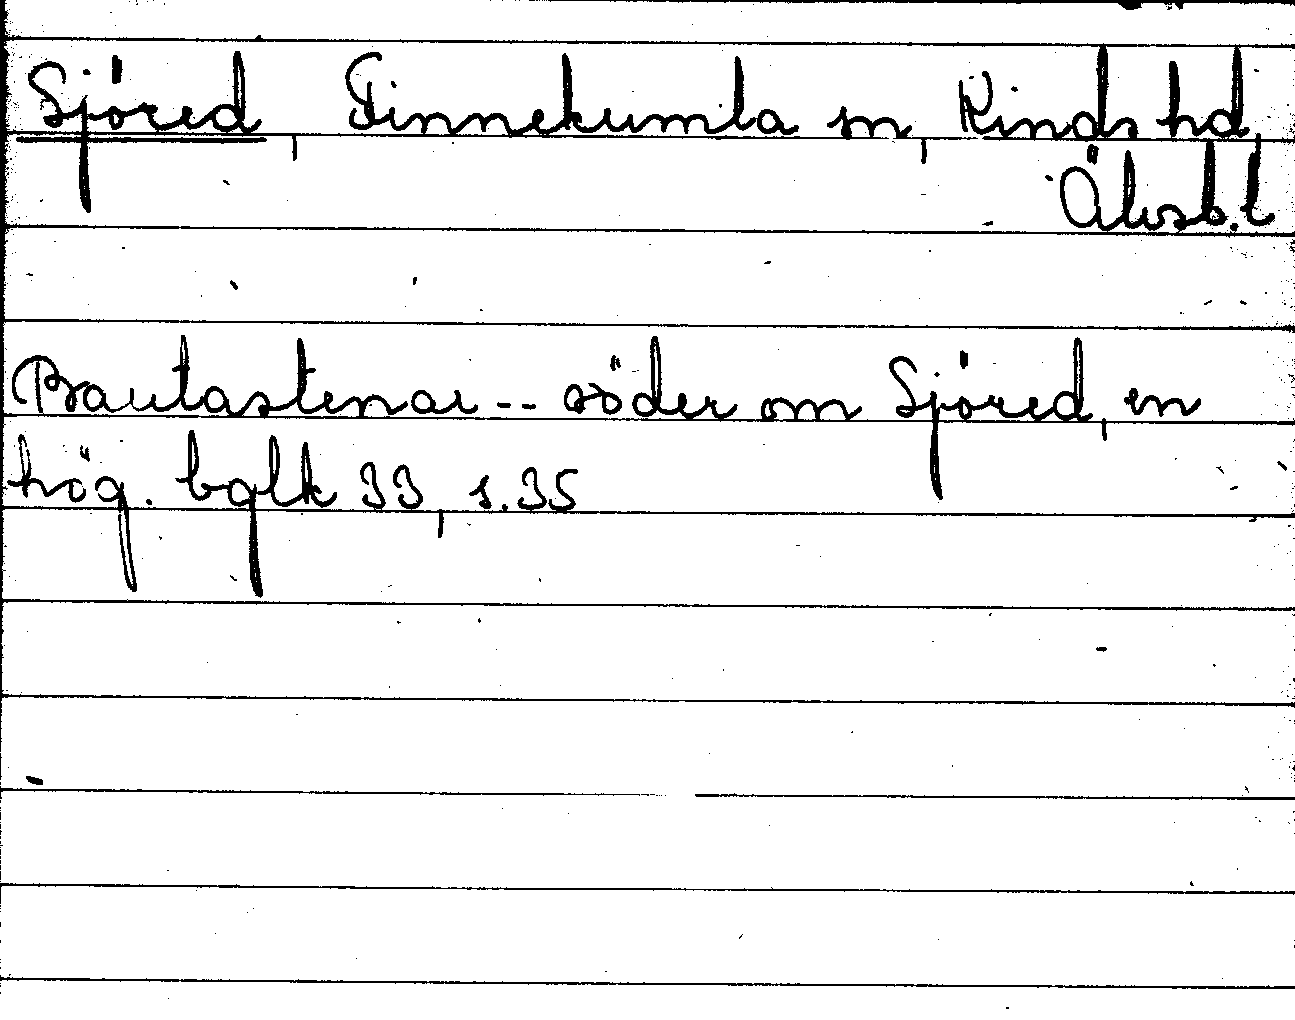 Sjöred, Finnekumla sn, Kinds hd,
Älvsb. l
Bautastenar -- söder om Sjöred, en
hög. bglk 33, s. 35